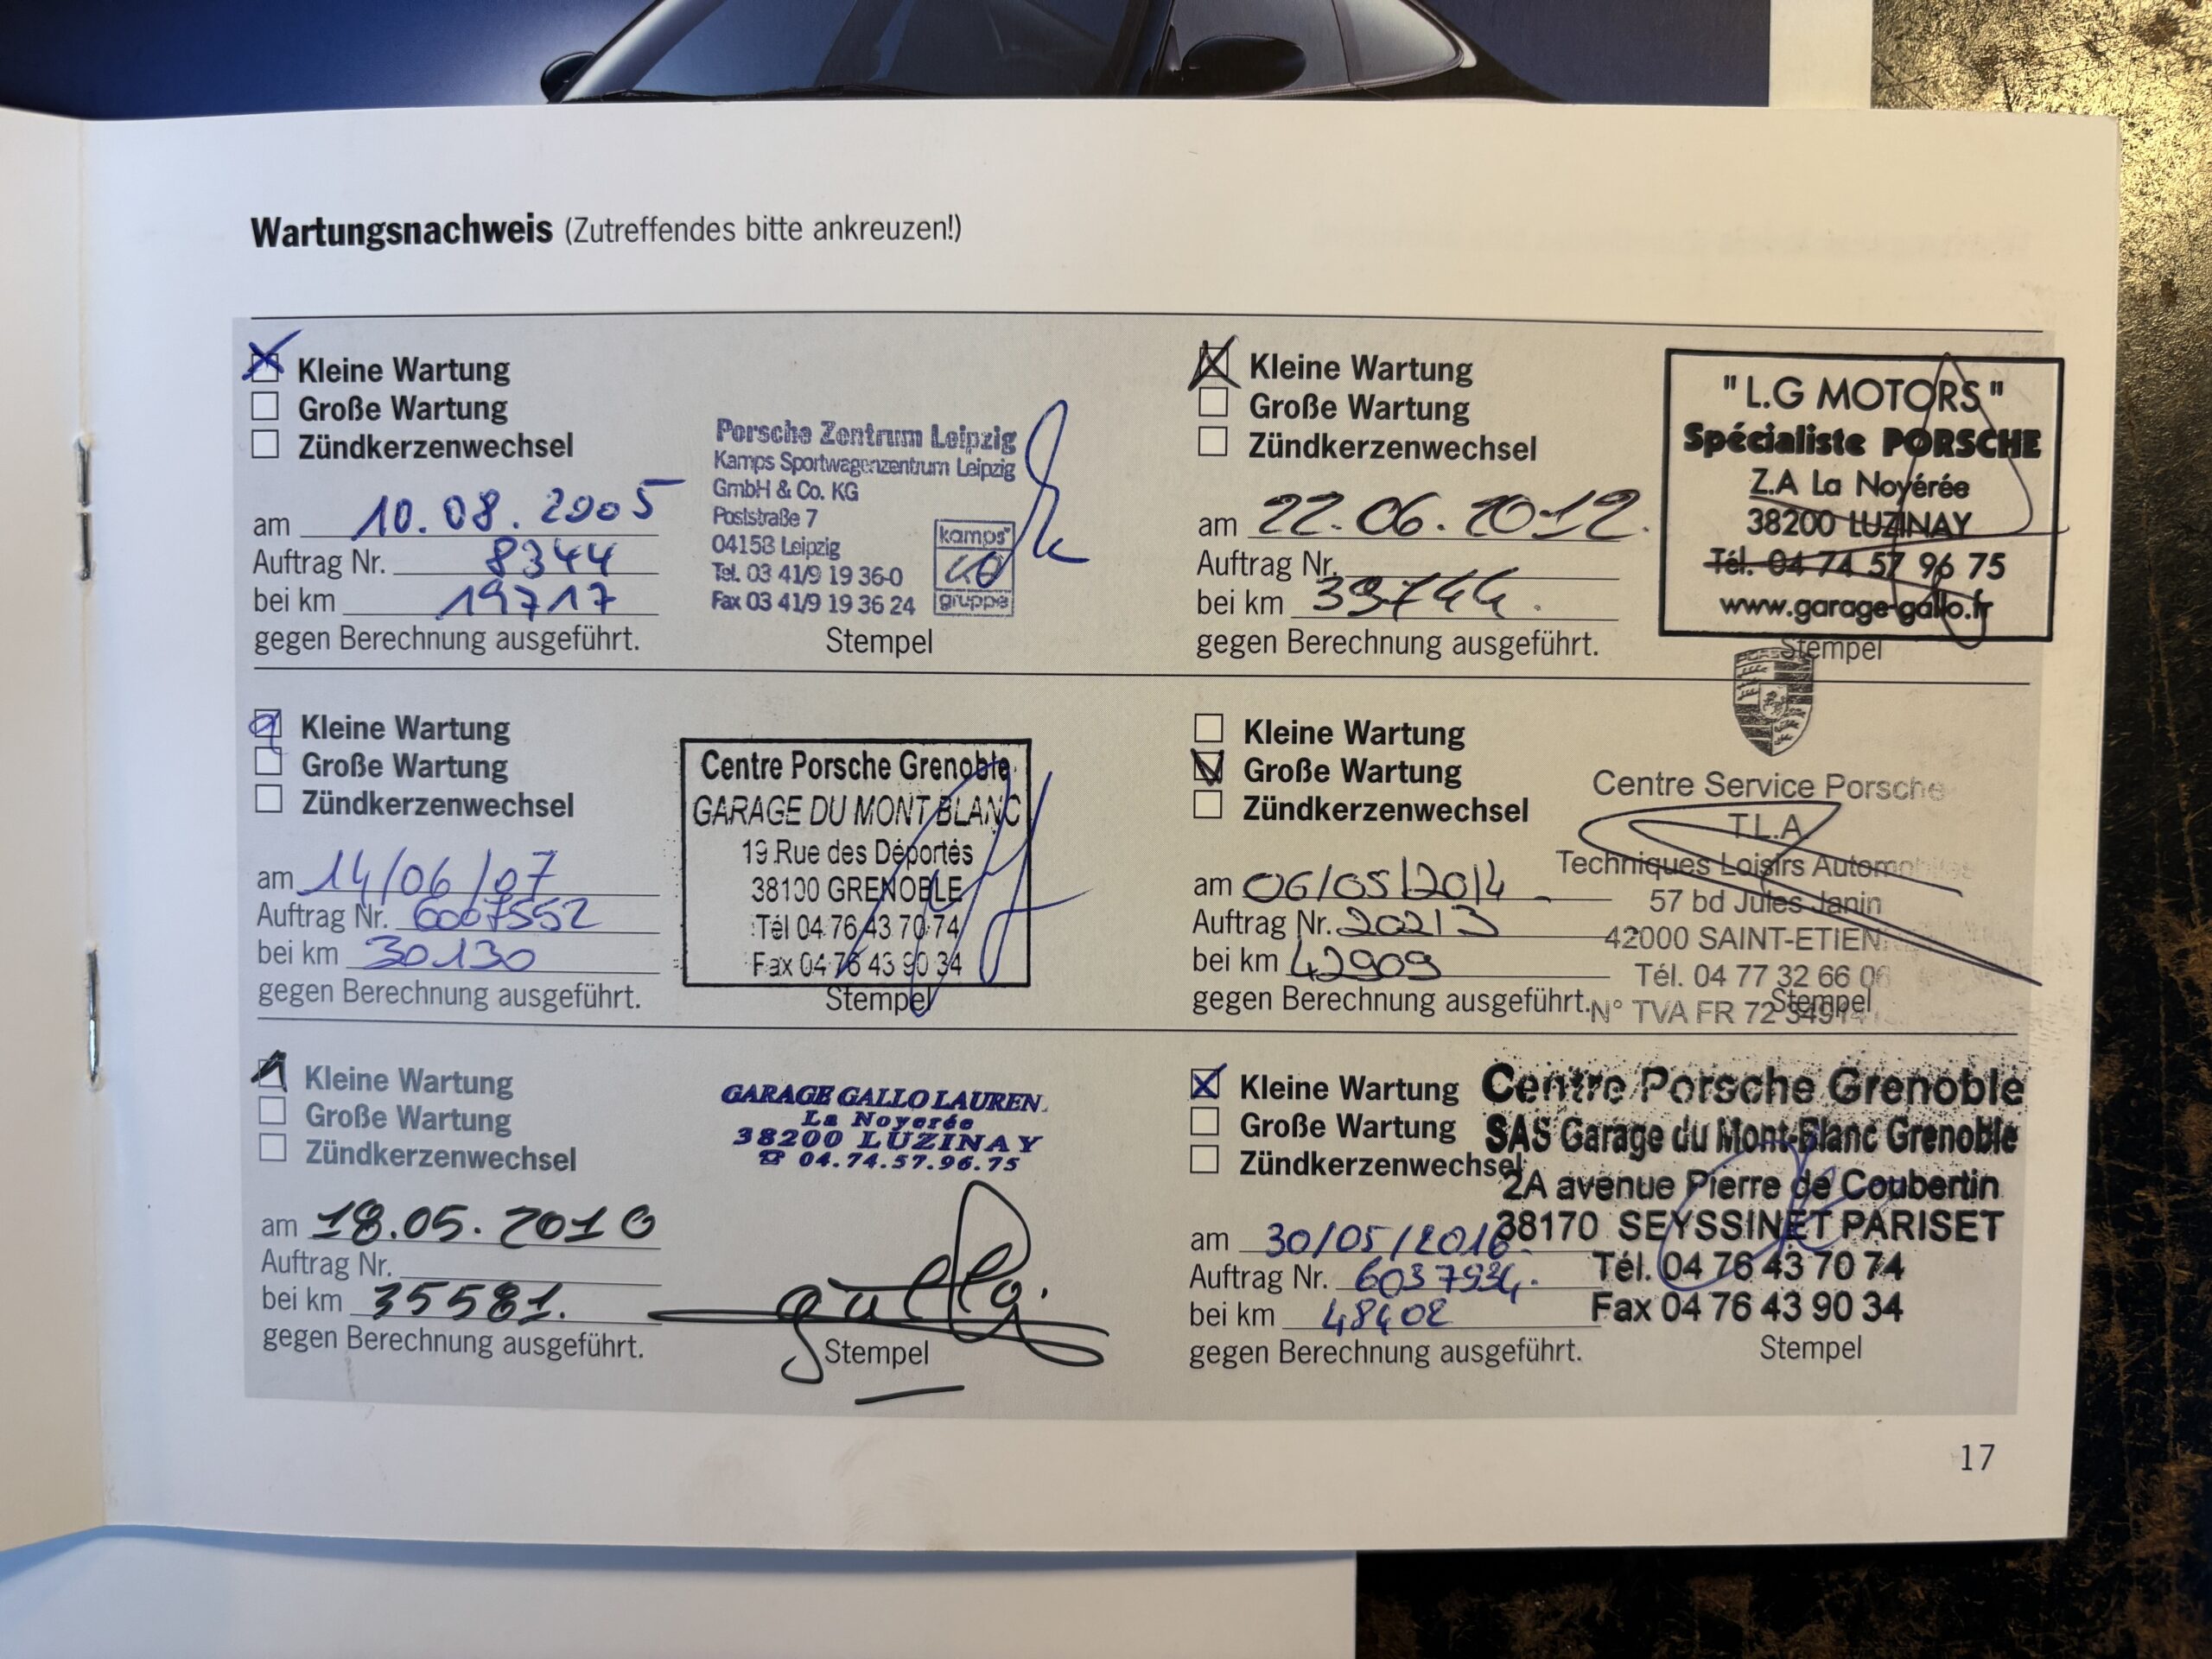 Wartungsnachweis (Zutreffendes bitte ankreuzen!)
Kleine Wartung
Große Wartung
Zündkerzenwechsel
am 10.08.2005
Auftrag Nr. 8344
bei km 19717
gegen Berechnung ausgeführt.
Porsche Zentrum Leipzig
Kamps Sportwagenzentrum Leipzig
GmbH & Co. KG
Poststraße 7
04158 Leipzig
Tel. 03 41/9 19 36-0
Fax 03 41/9 19 36 24
kamps
gruppe
Stempel
Kleine Wartung
Große Wartung
Zündkerzenwechsel
am 14/06/07
Auftrag Nr. 6007552
bei km 30130
gegen Berechnung ausgeführt.
Centre Porsche Grenoble
GARAGE DU MONT BLANC
19 Rue des Déportés
38100 GRENOBLE
Tél 04 76 43 70 74
Fax 04 76 43 90 34
Stempel
Kleine Wartung
Große Wartung
Zündkerzenwechsel
am 18.05.2010
Auftrag Nr.
bei km 35581.
gegen Berechnung ausgeführt.
GARAGE GALLO LAUREN
La Noyerée
38200 LUZINAY
☎ 04.74.57.96.75
gallo.
Stempel
Kleine Wartung
Große Wartung
Zündkerzenwechsel
am 22.06.2012.
Auftrag Nr.
bei km 39744.
gegen Berechnung ausgeführt.
"L.G MOTORS"
Spécialiste PORSCHE
Z.A La Noyérée
38200 LUZINAY
Tél. 04 74 57 96 75
www.garage-gallo.fr
Stempel
Kleine Wartung
Große Wartung
Zündkerzenwechsel
am 06/05/2014
Auftrag Nr. 20213
bei km 42909
gegen Berechnung ausgeführt.
PORSCHE
Centre Service Porsche
T.L.A.
Techniques Loisirs Automobiles
57 bd Jules Janin
42000 SAINT-ETIEN
Tél. 04 77 32 66 06
N° TVA FR 72
Stempel
Kleine Wartung
Große Wartung
Zündkerzenwechsel
am 30/05/2016
Auftrag Nr. 6037934.
bei km 48402
gegen Berechnung ausgeführt.
Centre Porsche Grenoble
SAS Garage du Mont-Blanc Grenoble
2A avenue Pierre de Coubertin
38170 SEYSSINET PARISET
Tél. 04 76 43 70 74
Fax 04 76 43 90 34
Stempel
17